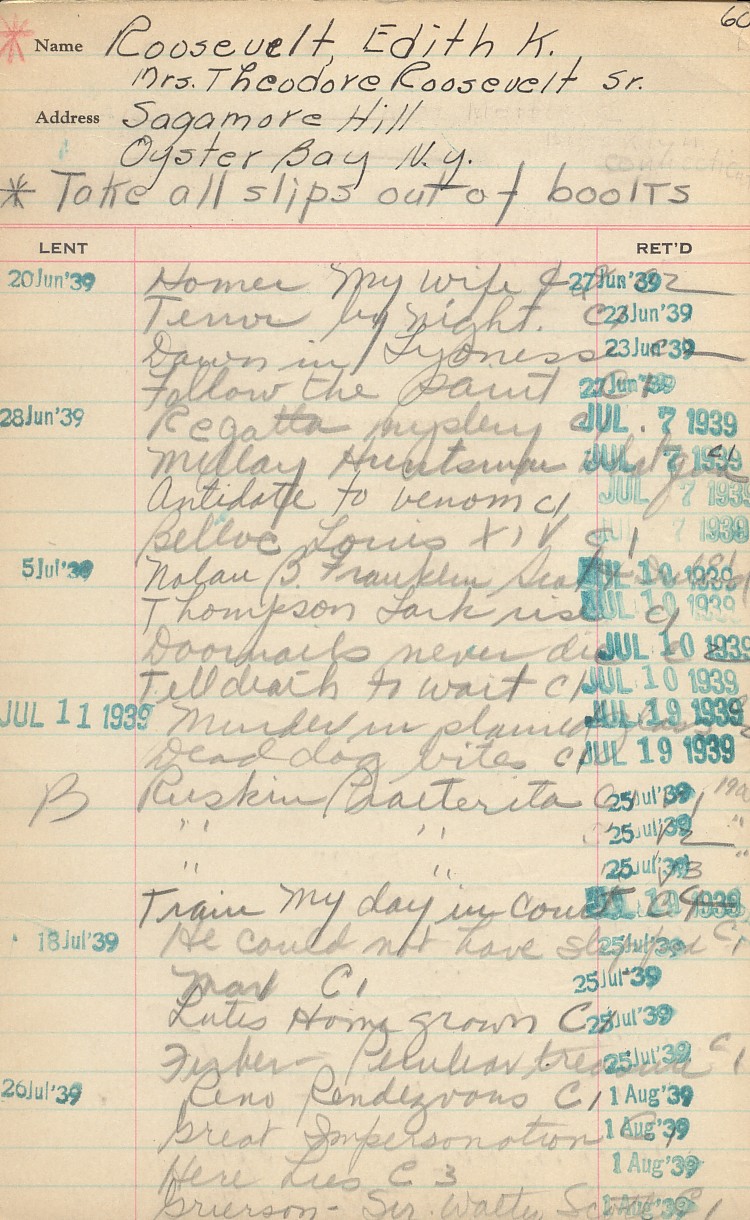 60
* Name Roosevelt, Edith K.
Mrs. Theodore Roosevelt Sr.
Address Sagamore Hill
Oyster Bay N.Y.
* Take all slips out of books
LENT RET'D
20 Jun'39 Homer My wife & 27 Jun'39
Terror by night. C1 23 Jun'39
Dawn in Lyonesse 23 Jun'39
Follow the Saint C1 22 Jun'39
28 Jun'39 Regatta mystery C1 JUL 7 1939
Millay Huntsman C1 JUL 7 1939
Antidote to venom C1 JUL 7 1939
Belloc Louis XIV C1 JUL 7 1939
5 Jul'39 Nolan B. Franklin JUL 10 1939
Thompson Lark rise C1 JUL 10 1939
Doornails never die C2 JUL 10 1939
Tell death to wait C1 JUL 10 1939
JUL 11 1939 Murder in JUL 19 1939
Dead dog bites C1 JUL 19 1939
B Ruskin Praeterita V1 25 Jul'39
" " V2 " 25 Jul'39
" " V3 " 25 Jul'39
Train My day in court 1939
18 Jul'39 He could not have slipped C1 25 Jul'39
C1 25 Jul'39
Lutes Home grown 25 Jul'39
Ferber - Peculiar treasure C1 25 Jul'39
26 Jul'39 Reno Rendezvous C1 1 Aug'39
Great Impersonation C1 1 Aug'39
Here Lies C3 1 Aug'39
Grierson - Sir Walter Scott C1 1 Aug'39